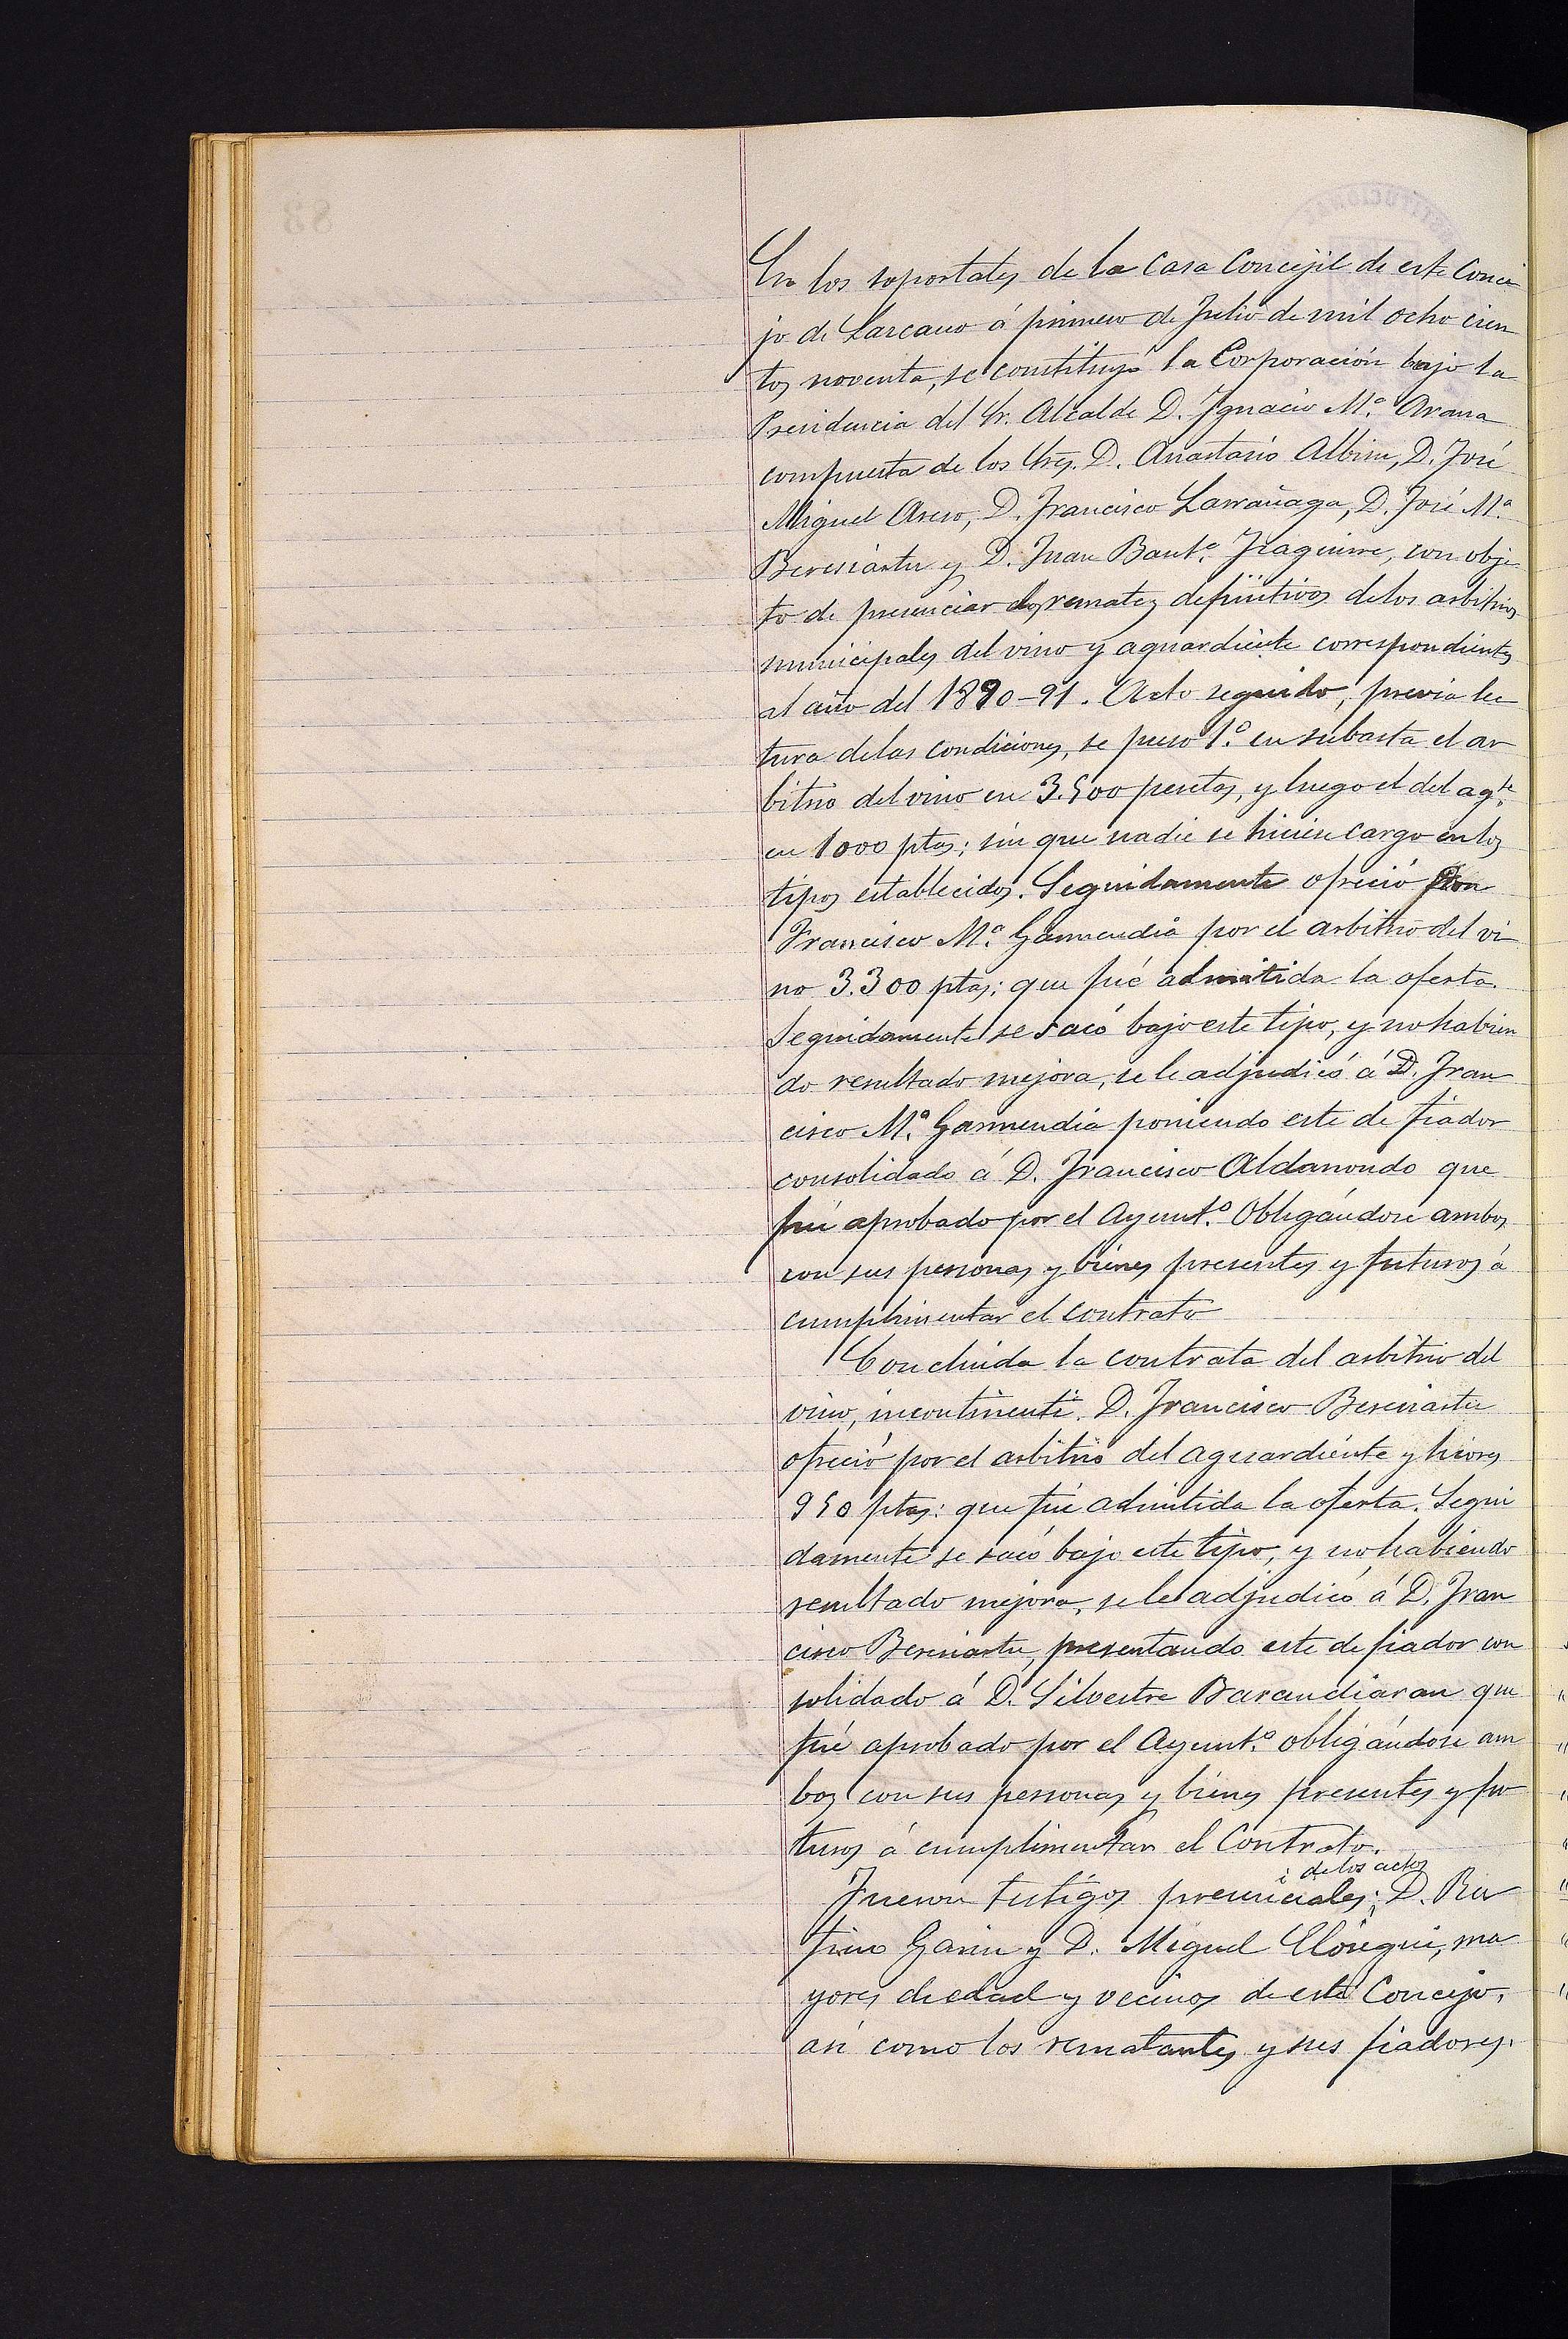 En los soportales de la Casa Concejil de este Conce
jo de Lazcano á primero de Julio de mil ocho cien
tos noventa, se constituyó la Corporación bajo la
Presidencia del Sr. Alcalde D. Ignacio M.ª Arana
compuesta de los Sres. D. Anastasio Albisu, D. José
Miguel Aseso, D. Francisco Larrañaga, D. José M.ª
Beresiartu y D. Juan Baut.ª Iraguirre, con obje
to de presenciar los remates definitivos de los arbitrios
municipales del vino y aguardiente correspondientes
al año del 1890-91. Acto seguido, previa lec
tura de las condiciones, se puso 1.º en subasta el ar
bitrio del vino en 3.500 pesetas, y luego el del ag.te
en 1000 ptas; sin que nadie se hiciese cargo en los
tipos establecidos. Seguidamente ofreció Don
Francisco M.ª Garmendia por el arbitrio del vi
no 3.300 ptas; que fué admitida la oferta.
Seguidamente se sacó bajo este tipo, y no habien
do resultado mejora, se le adjudicó á D. Fran
cisco M.ª Garmendia poniendo este de fiador
consolidado á D. Francisco Aldanondo que
fué aprobado por el Ayunt.º Obligándose ambos
con sus personas y bienes presentes y futuros á
cumplimentar el contrato
Concluida la contrata del arbitrio del
vino, incontinenti. D. Francisco Beresiartu
ofreció por el arbitrio del aguardiente y licores
950 ptas: que fué admitida la oferta. Segui
damente se sacó bajo este tipo, y no habiendo
resultado mejora, se le adjudicó á D. Fran
cisco Beresiartu, presentando este de fiador con
solidado á D. Silvestre Barandiaran que
fué aprobado por el Ayunt.º obligándose am
bos con sus personas y bienes presentes y fu
turos á cumplimentar el Contrato.
de los actos
Fueron testigos presenciales; D. Ru
fino Garin y D. Miguel Elósegui, ma
yores de edad y vecinos de este Concejo,
así como los rematantes y sus fiadores.